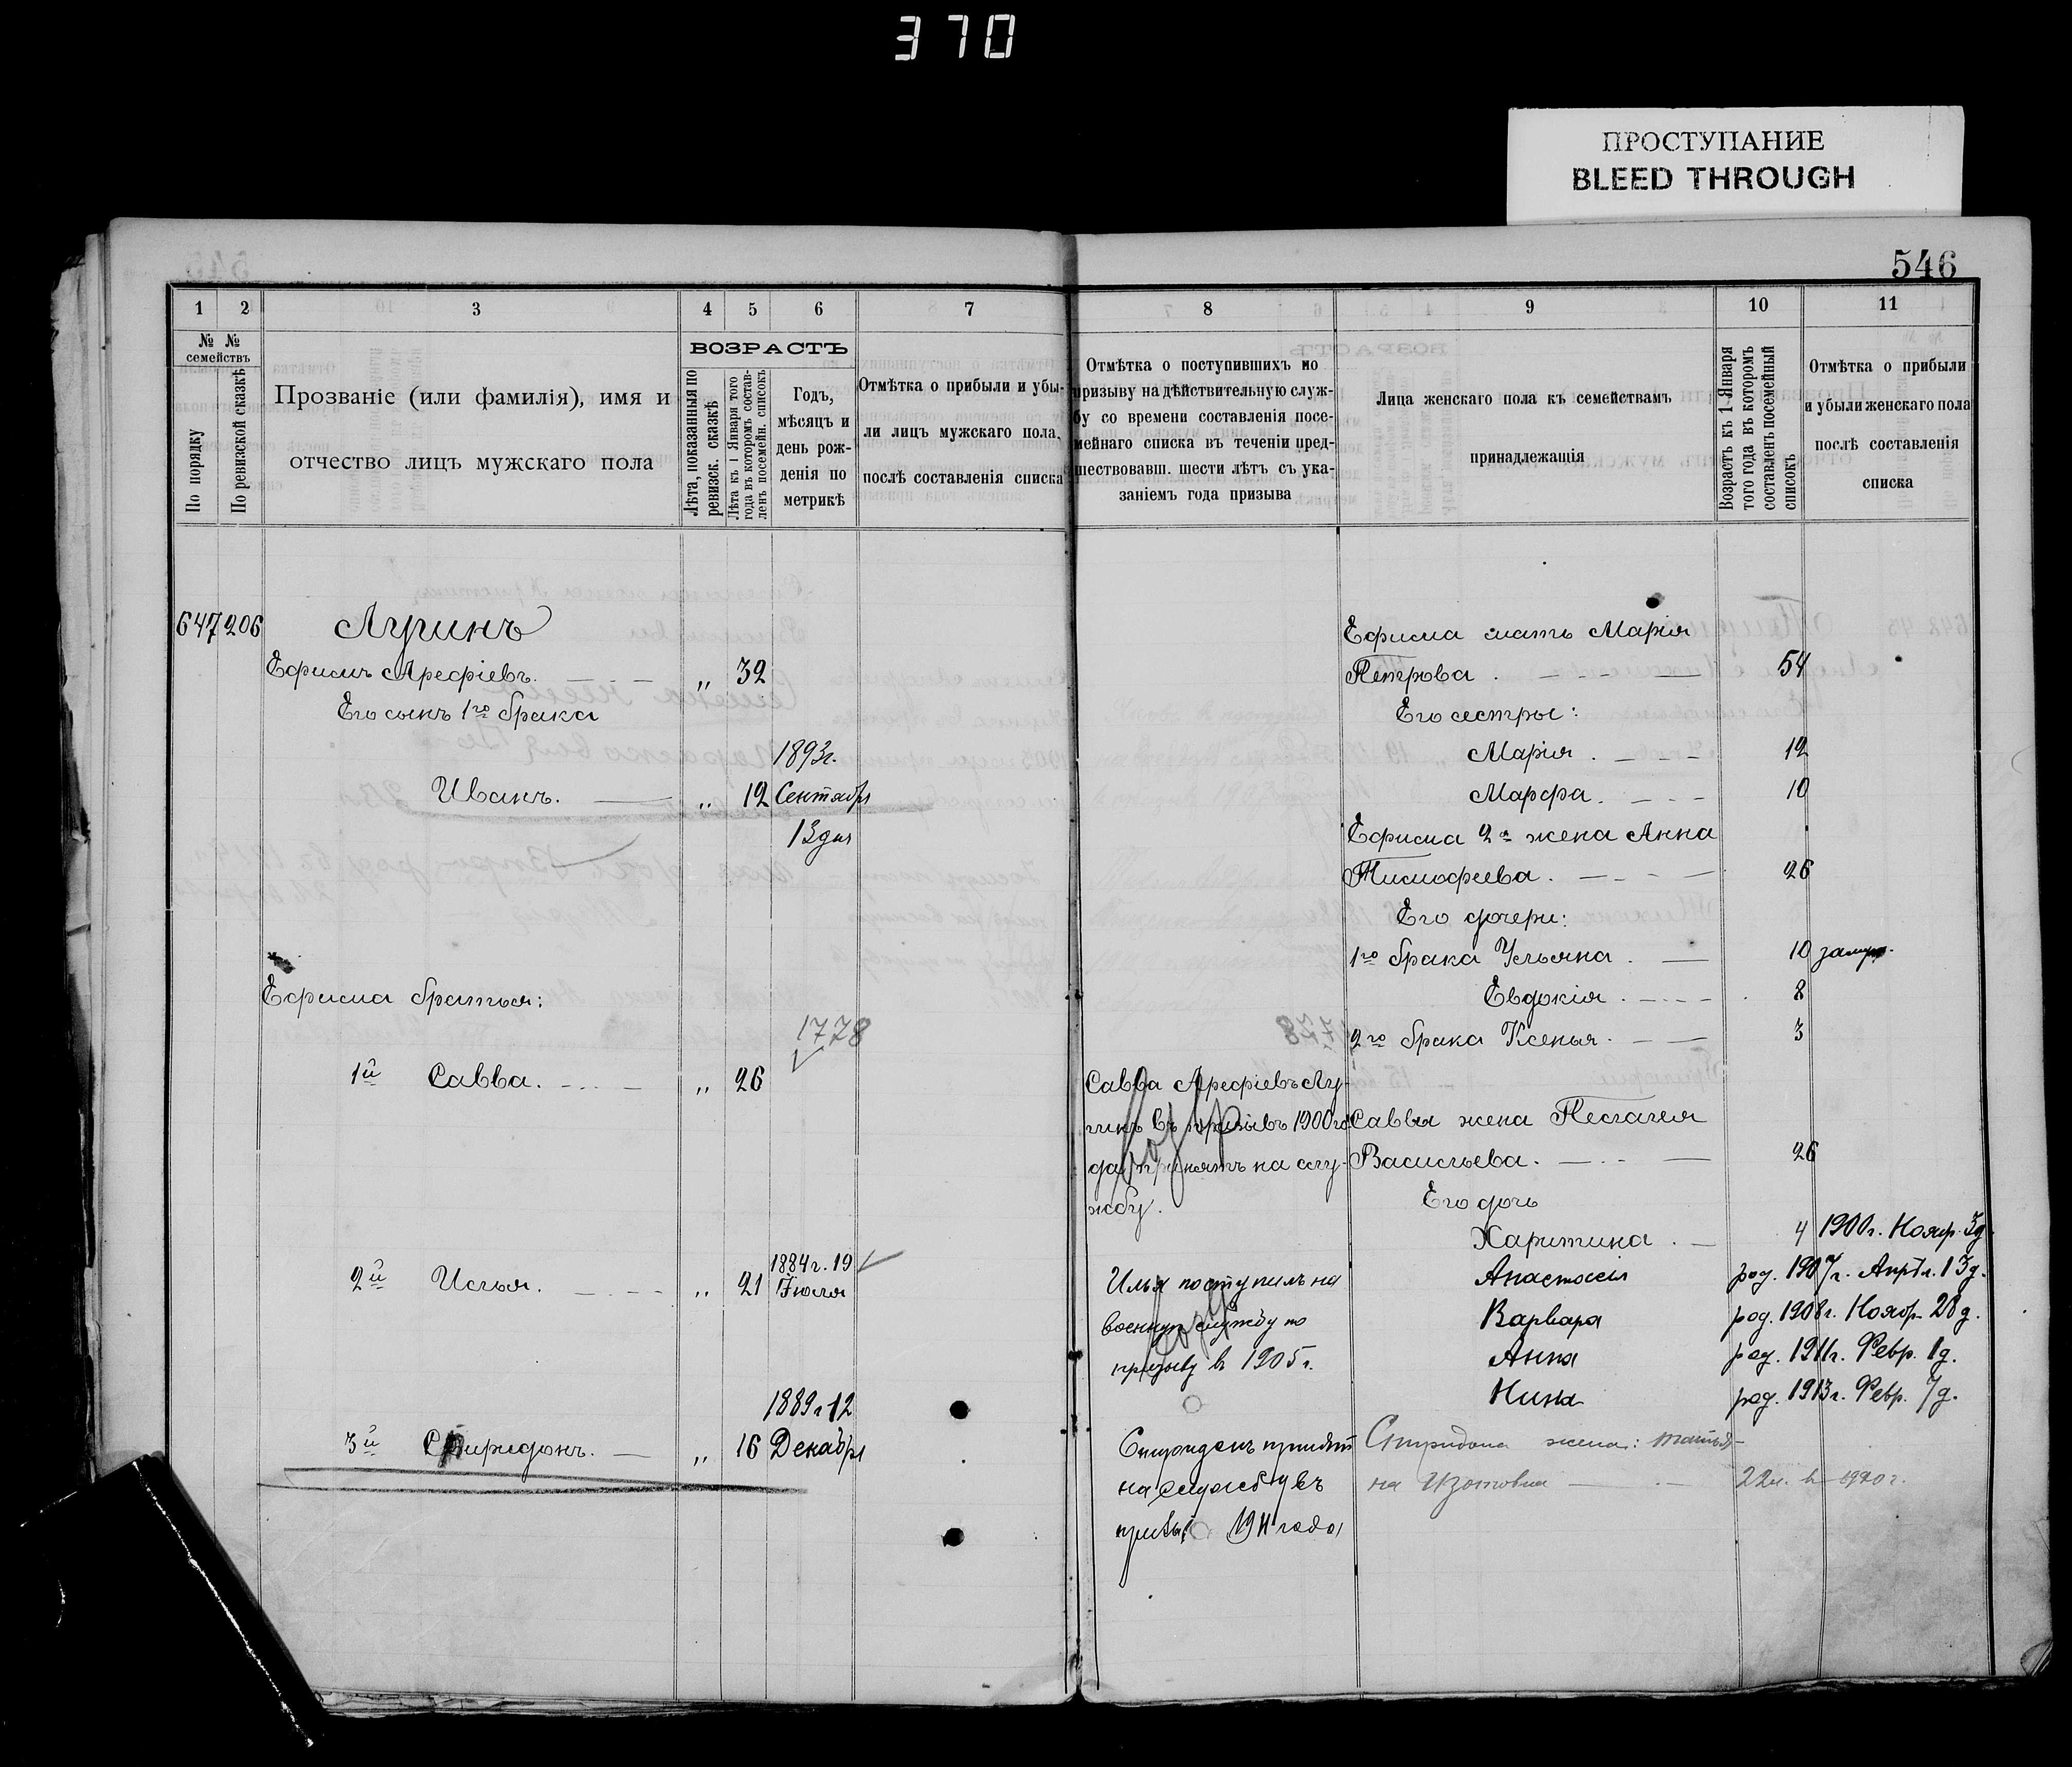 370
ПРОСТУПАНИЕ
BLEED THROUGH
546
1 2 3 4 5 6 7 8 9 10 11
№ № семействъ
По порядку
По ревизской сказкѣ
Прозваніе (или фамилія), имя и
отчество лицъ мужскаго пола
ВОЗРАСТЪ
Лѣта, показанныя по
ревизск. сказкѣ
Лѣта къ 1 Января того
года въ которомъ состав-
ленъ посемейн. списокъ
Годъ,
мѣсяцъ и
день рож-
денія по
метрикѣ
Отмѣтка о прибыли и убы-
ли лицъ мужскаго пола,
послѣ составленія списка
Отмѣтка о поступившихъ по
призыву на дѣйствительную служ-
бу со времени составленія посе-
мейнаго списка въ теченіи пред-
шествовавш. шести лѣтъ съ ука-
заніемъ года призыва
Лица женскаго пола къ семействамъ
принадлежащія
Возрастъ къ 1 Января
того года въ которомъ
составленъ посемейный
списокъ
Отмѣтка о прибыли
и убыли женскаго пола
послѣ составленія
списка
647 206
Ефимъ Арефіевъ. „ 32
Его сынъ 1го брака
1893г.
Иванъ. „ 12 Сентября
13 дня
Ефима братья:
1778
1й Савва. „ 26
1884г. 19
2й Илья. „ 21 Іюля
1889г 12
3й Спиридонъ. „ 16 Декабря
Савва Арефіевъ Лу-
гинъ въ призывъ 1900 го-
да принятъ на слу-
жбу.
Илья поступилъ на
военную службу по
призыву въ 1905 г.
Спиридонъ принят
на службу въ
1911 года
Ефима мать Марія
Петрова. 54
Его сестры:
Марія. 12
Марфа. 10
Ефима 2я жена Анна
Тимофеева. 26
Его дочери:
1го брака Ульяна. 10 замуж.
Евдокія. 8
2го брака Ксенья. 3
Саввы жена Пелагея
Васильева. 26
Его дочь
Харитина. 4 1900г. Нояр. 3д
Анастасія род. 1907г. Апрѣл. 13д.
Варвара род. 1908г. Ноябр 28д.
Анна род. 1911г. Февр. 1д.
Нина род. 1913г. Февр. 7д.
Спиридона жена: Татья-
на Изотовна 22л. в 1920г.